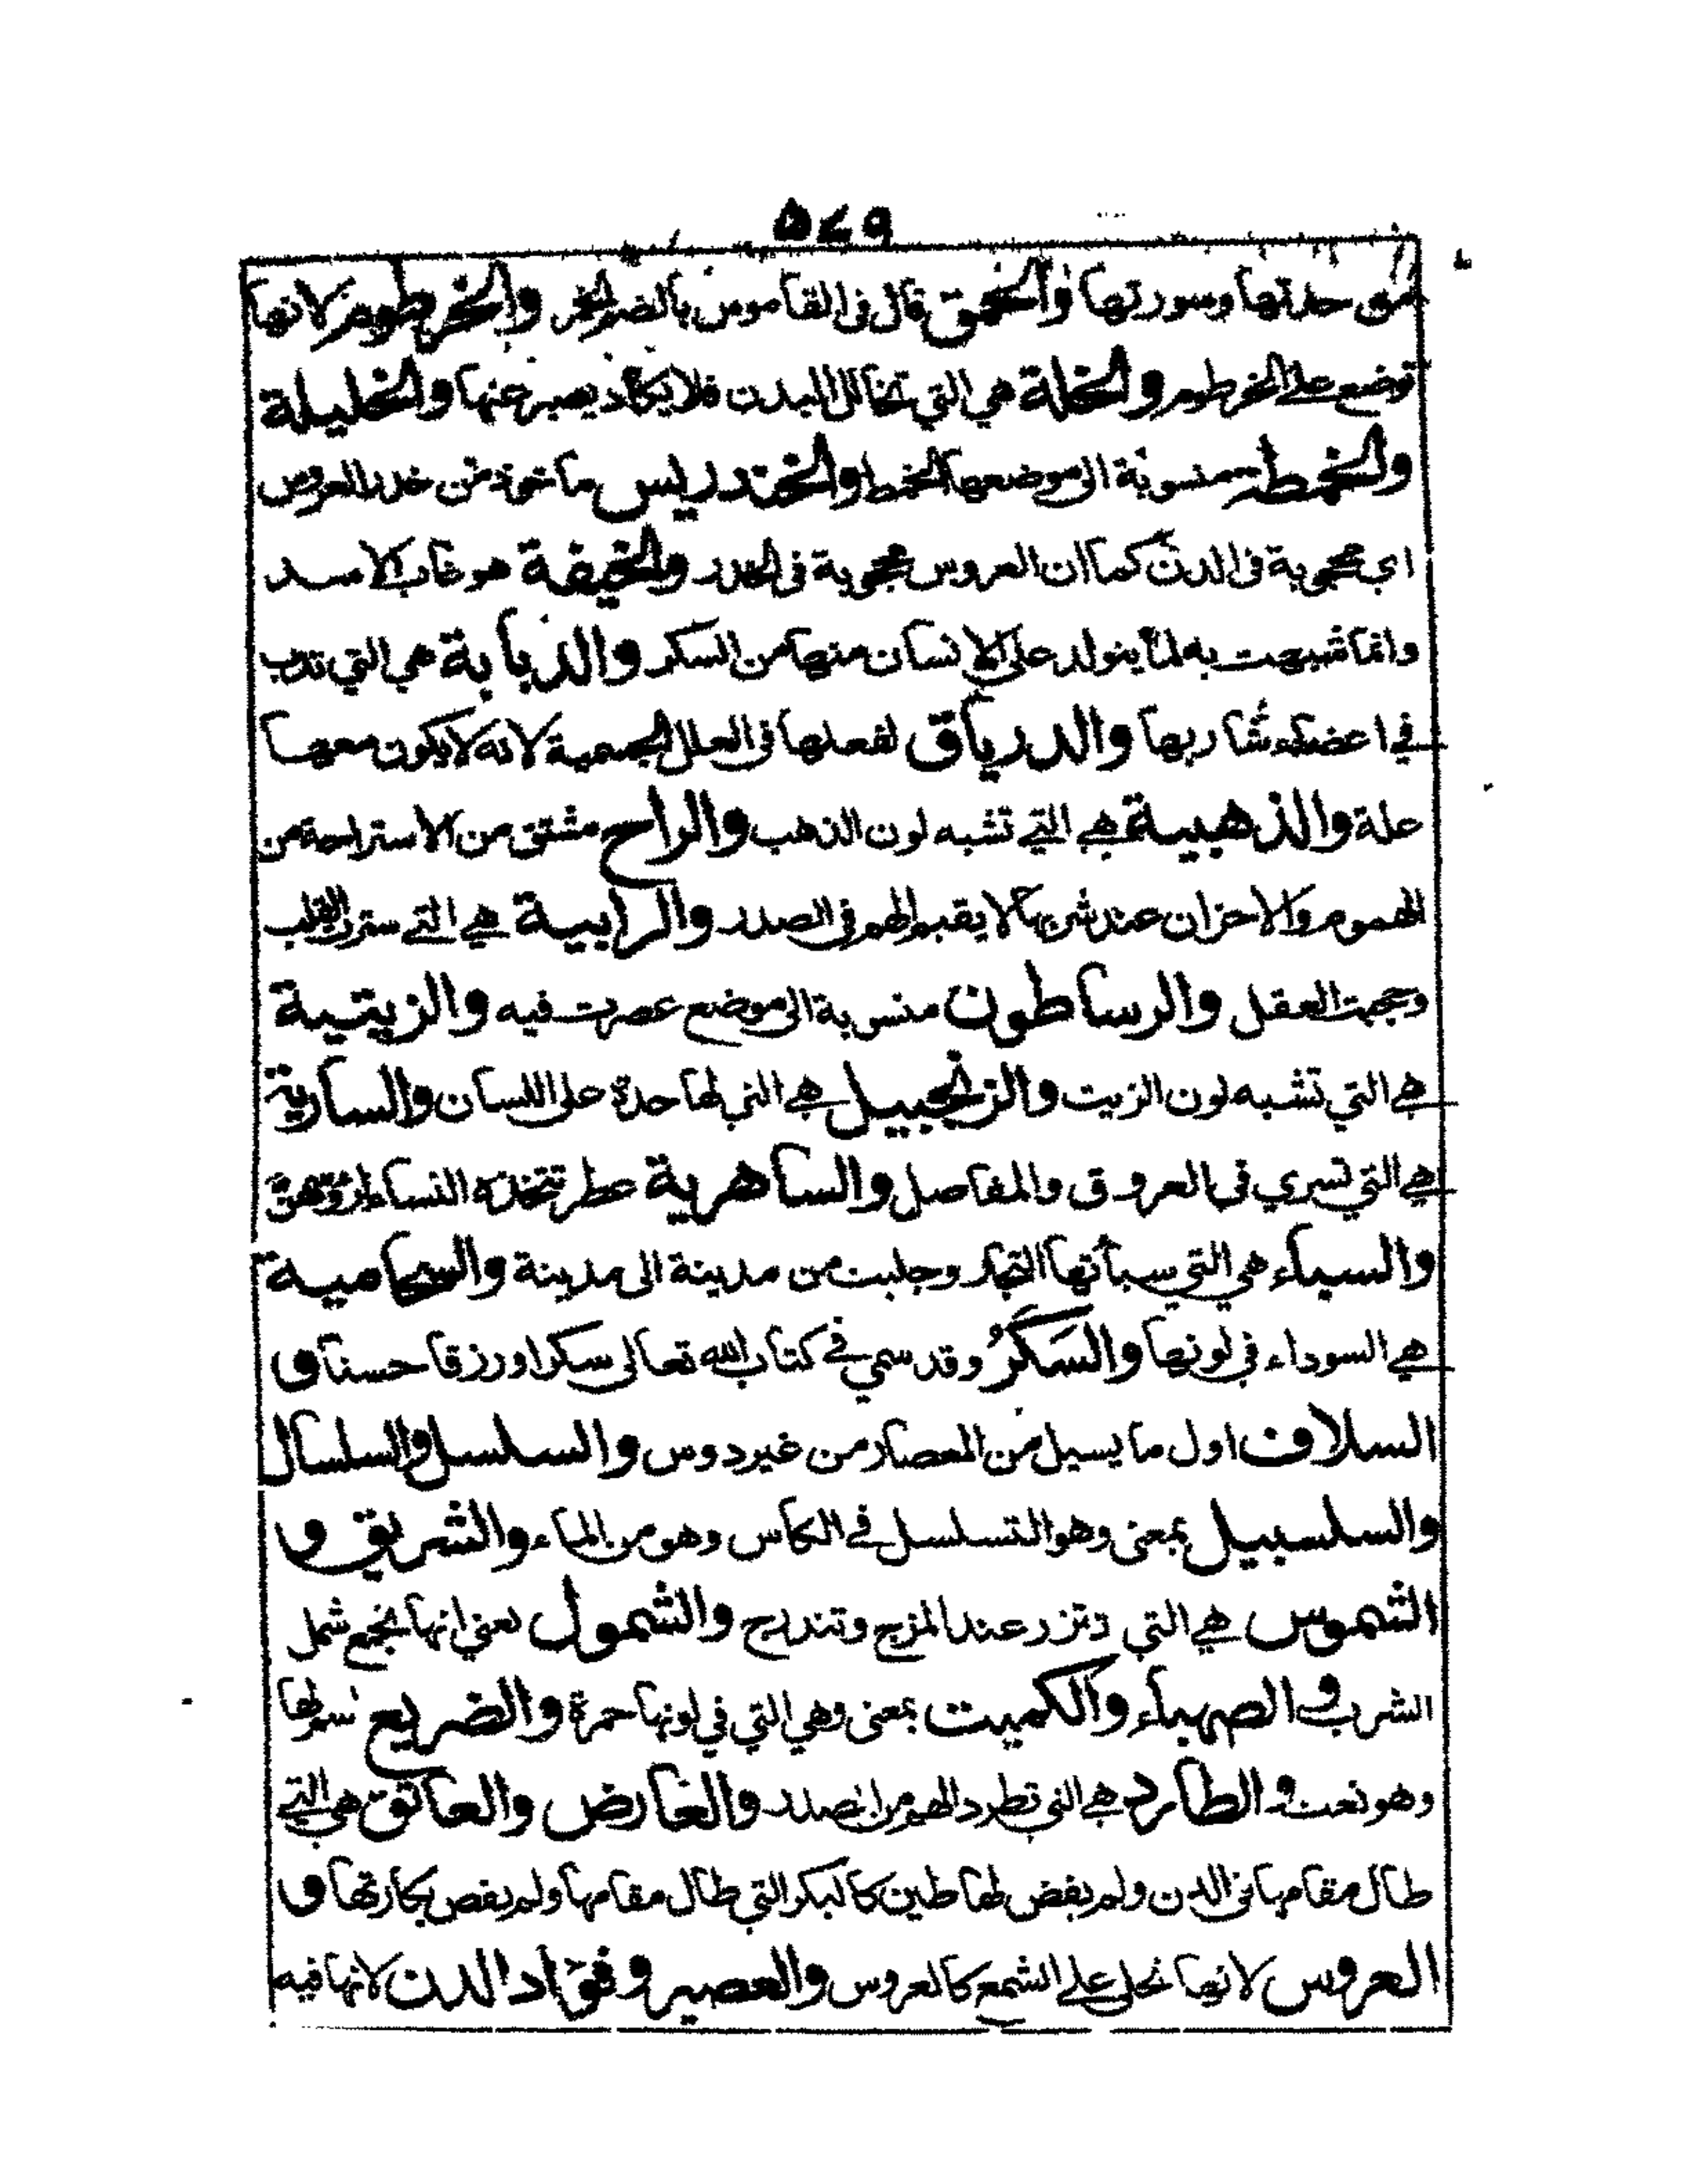 ٥٤٩
من حدتها وسورتها والحمق قال في القاموس بالضم الخمر والخرطوم لانها
توضع على الخرطوم والخلة هي التي تخالل البدن فلا يكاد يصبر عنها والخليلة
والخمطة منسوبة الى موضعها الخمط والخندريس ماخوذ من خدر العروس
اي محجوبة في الدن كما ان العروس محجوبة في الخدر والخيفة هو غاب الاسد
وانما شبهت به لما يتولد على الانسان منها من السكر والدبابة هي التي تدب
في اعضاء شاربها والدرياق لفعلها في العلل الجسمية لانه لا يكون معها
علة والذهبية هي التي تشبه لون الذهب والراح مشتق من الاستراحة من
الهموم والاحزان عند شربها لا يقيم الهم في الصدر والرابية هي التي سترت القلب
وحجبت العقل والرساطون منسوبة الى موضع عصرت فيه والزيتية
هي التي تشبه لون الزيت والزنجبيل هي التي لها حدة على اللسان والسارية
هي التي تسري في العروق والمفاصل والساهرية عطر تتخذه النساء
والسباء هي التي سبأتها التجار وجلبت من مدينة الى مدينة والسحامية
هي السوداء في لونها والسَكَرُ وقد سمي في كتاب الله تعالى سكرا ورزقا حسنا و
السلاف اول ما يسيل من المعصار من غير دوس والسلسل والسلسال
والسلسبيل بمعنى وهو التسلسل في الكاس وهو من الماء والشريق و
الشموس هي التي تتزر عند المزج وتندرج والشمول يعني انها تجمع شمل
الشرب والصهباء والكميت بمعنى وهي التي في لونها حمرة والضريع اسم لها
وهو نعت والطارد هي التي تطرد الهم من الصدر والعارض والعاتق هي التي
طال مقامها في الدن ولم يفض لها طين كالبكر التي طال مقامها ولم يفض بكارتها و
العروس لانها تجلى على الشمع كالعروس والعصير وفؤاد الدن لانها فيه